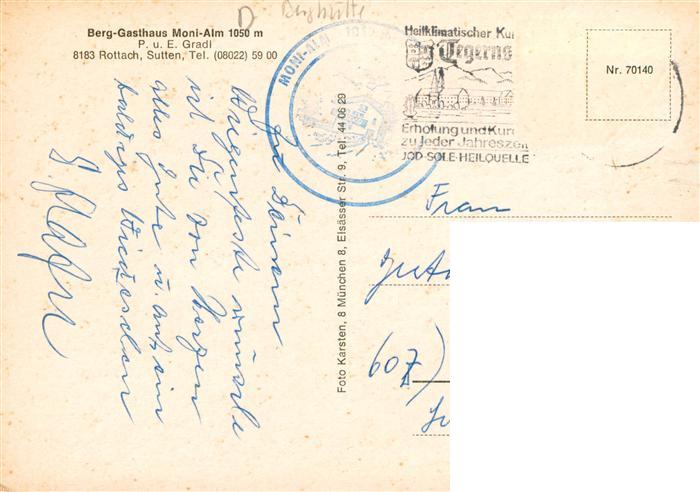 D Berghütte
Berg-Gasthaus Moni-Alm 1050 m
P. u. E. Gradl
8183 Rottach, Sutten, Tel. (08022) 59 00
MONI-ALM
Heilklimatischer Kur
Tegerns
Erholung und Kur
zu jeder Jahreszeit
JOD-SOLE-HEILQUELLE
Nr. 70140
Foto Karsten, 8 München 8, Elsässer Str. 9, Tel. 44 06 29
Zu Deinem
Wiegenfeste wünsche
ich Dir von Herzen
alles Gute u. auf ein
baldiges Wiedersehen
Frau
607